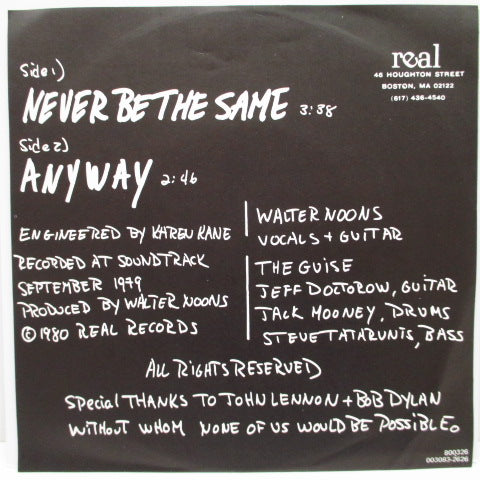 Side 1)
NEVER BE THE SAME 3:38
Side 2)
ANYWAY 2:46
real
46 HOUGHTON STREET
BOSTON, MA 02122
(617) 436-4540
ENGINEERED BY KAREN KANE
RECORDED AT SOUNDTRACK
SEPTEMBER 1979
PRODUCED BY WALTER NOONS
© 1980 REAL RECORDS
WALTER NOONS
VOCALS + GUITAR
THE GUISE
JEFF DOCTOROW, GUITAR
JACK MOONEY, DRUMS
STEVE TATARUNIS, BASS
ALL RIGHTS RESERVED
Special THANKS TO JOHN LENNON + BOB DYLAN
WITHOUT WHOM NONE OF US WOULD BE POSSIBLE.
800326
003083-2626